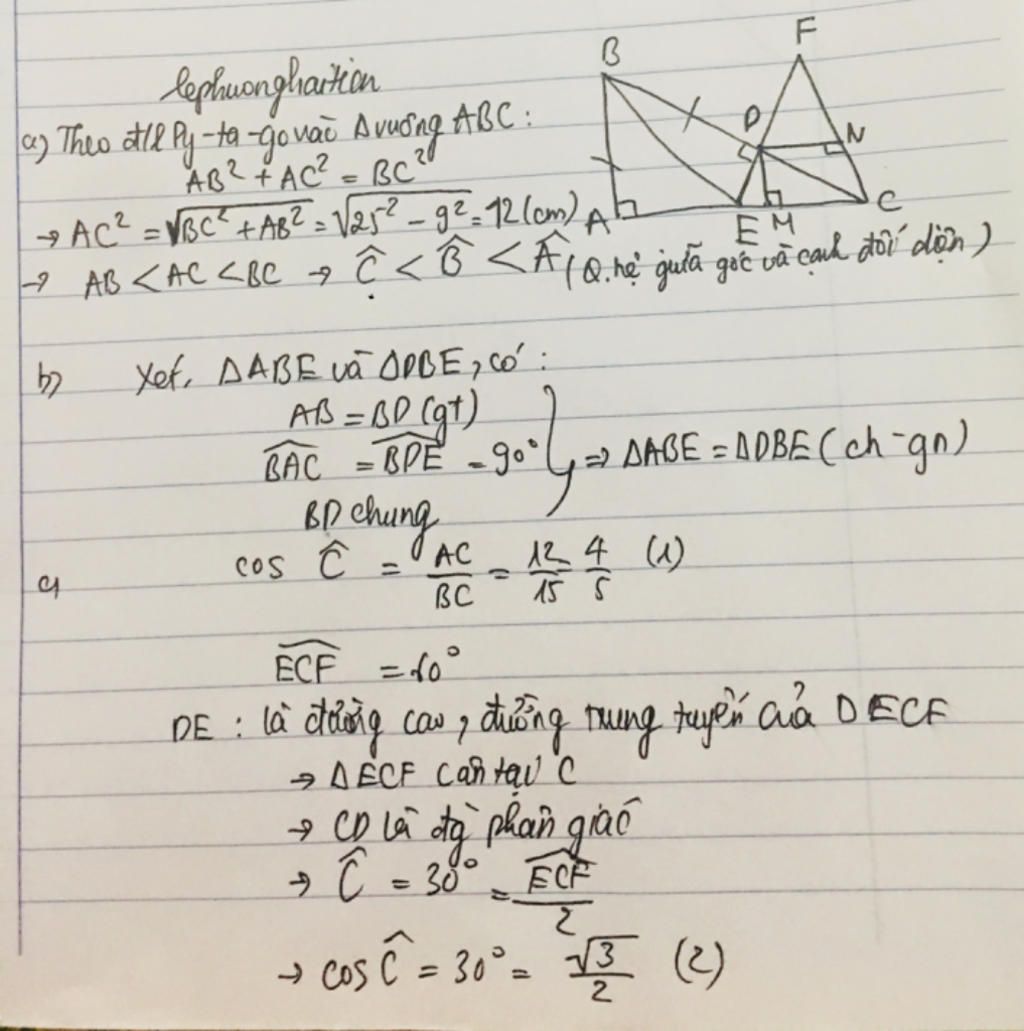 lephuonghaitien
a) Theo đ/l Py-ta-go vào Δ vuông ABC:
AB² + AC² = BC²
→ AC² = √BC² + AB² = √25² - 9² = 12 (cm)
→ AB < AC < BC → Ĉ < B̂ < Â (Q.hệ giữa góc và cạnh đối diện)
B
F
D
N
A
E
M
C
b) Xét, ΔABE và ΔDBE, có:
AB = BD (gt)
BAC = BDE = 90° ⇒ ΔABE = ΔDBE (ch-gn)
BD chung
c) cos Ĉ = AC/BC = 12/15 4/5 (1)
ECF = 60°
DE : là đường cao, đường trung tuyến của ΔECF
→ ΔECF cân tại C
→ CD là đg phân giác
→ Ĉ = 30° = ECF/2
→ cos Ĉ = 30° = √3/2 (2)